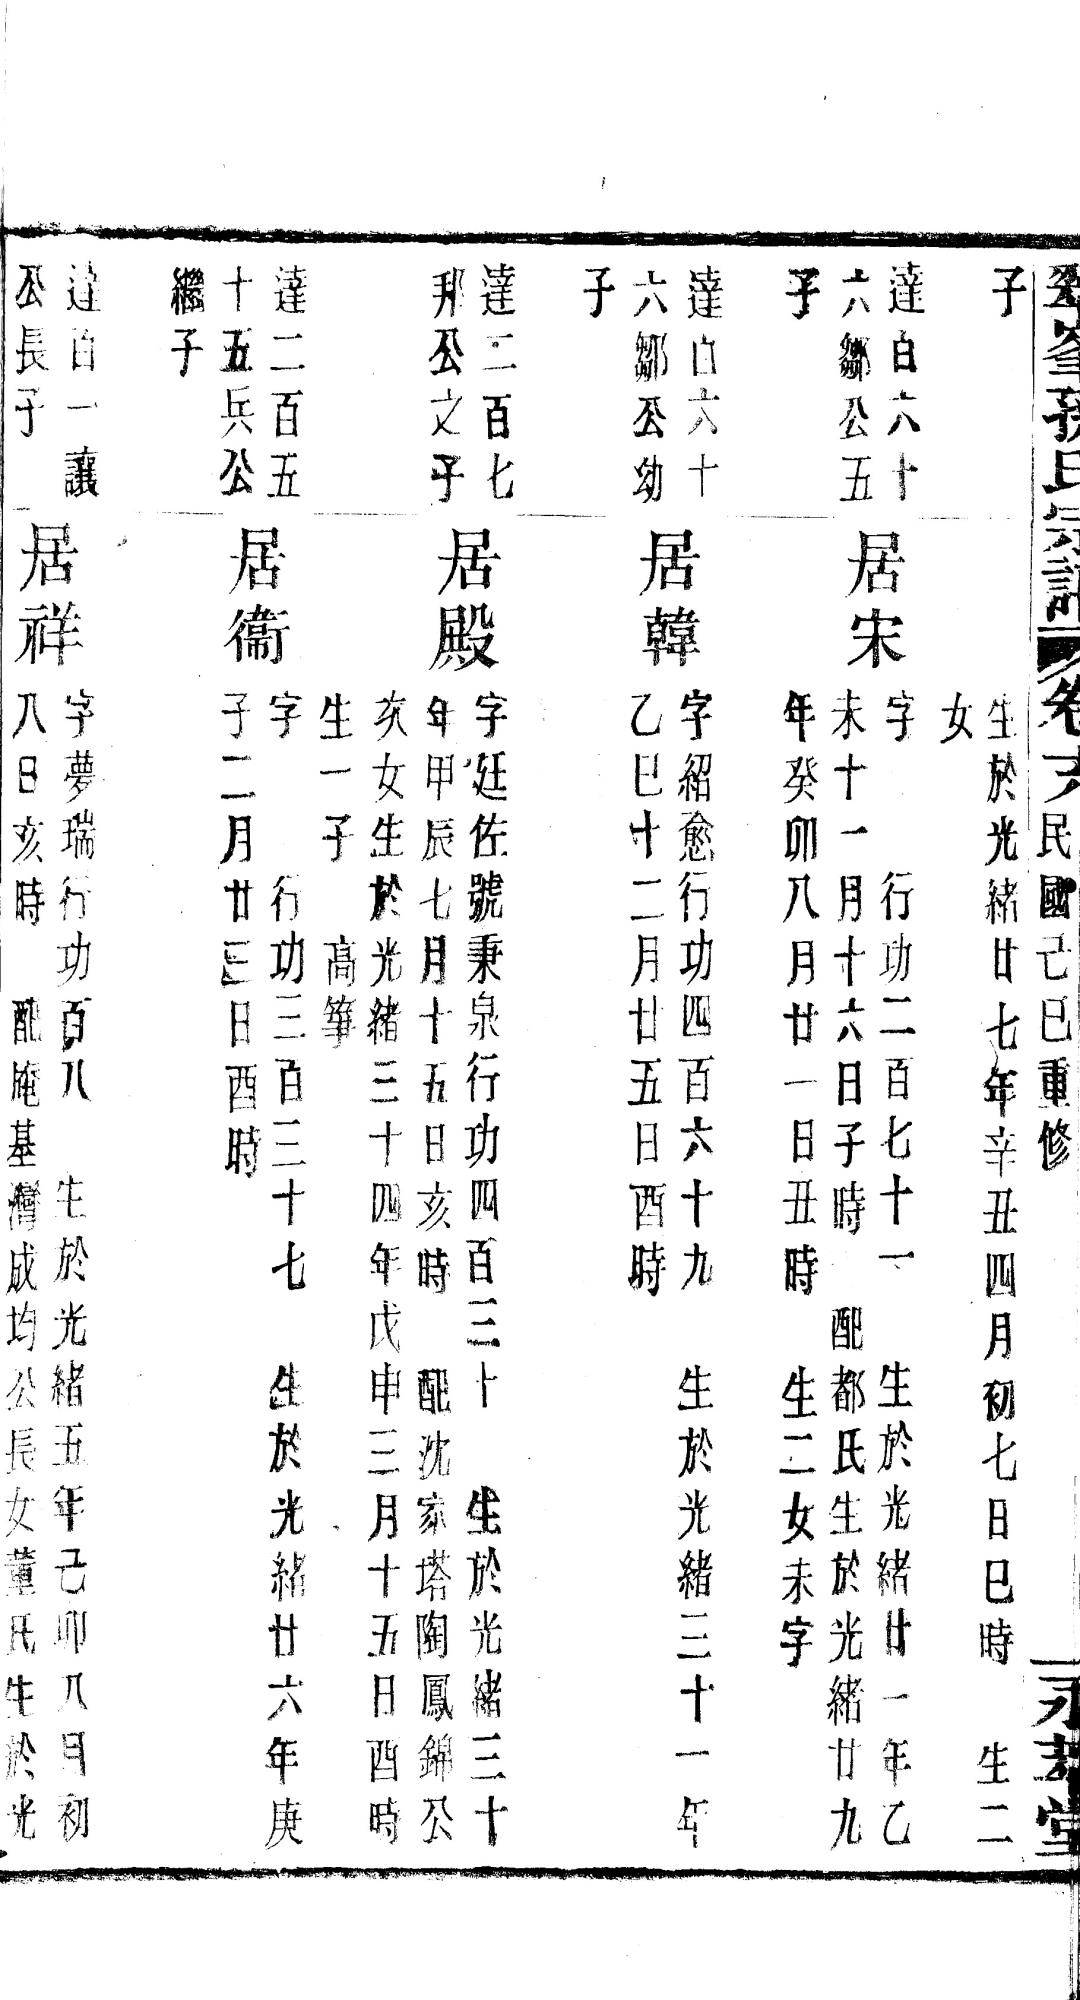 峯孫氏宗譜 卷六 民國己巳重修
堂
子
生於光緒廿七年辛丑四月初七日巳時 生二
女
達百六十
六鄒公五
子
居宋
字 行功二百七十一 生於光緒廿一年乙
未十一月十六日子時 配都氏生於光緒廿九
年癸卯八月廿一日丑時 生二女未字
達百六十
六鄒公幼
子
居韓
字紹愈行功四百六十九 生於光緒三十一年
乙巳十二月廿五日酉時
達二百七
邦公之子
居殿
字廷佐號秉泉行功四百三十 生於光緒三十
年甲辰七月十五日亥時 配沈家塔陶鳳錦公
次女生於光緒三十四年戊申三月十五日酉時
生一子 高箏
達二百五
十五兵公
繼子
居衞
字 行功三百三十七 生於光緒廿六年庚
子二月廿三日酉時
達百一讓
公長子
居祥
字夢瑞行功百八 生於光緒五年己卯八月初
八日亥時 配庵基灣成均公長女董氏生於光